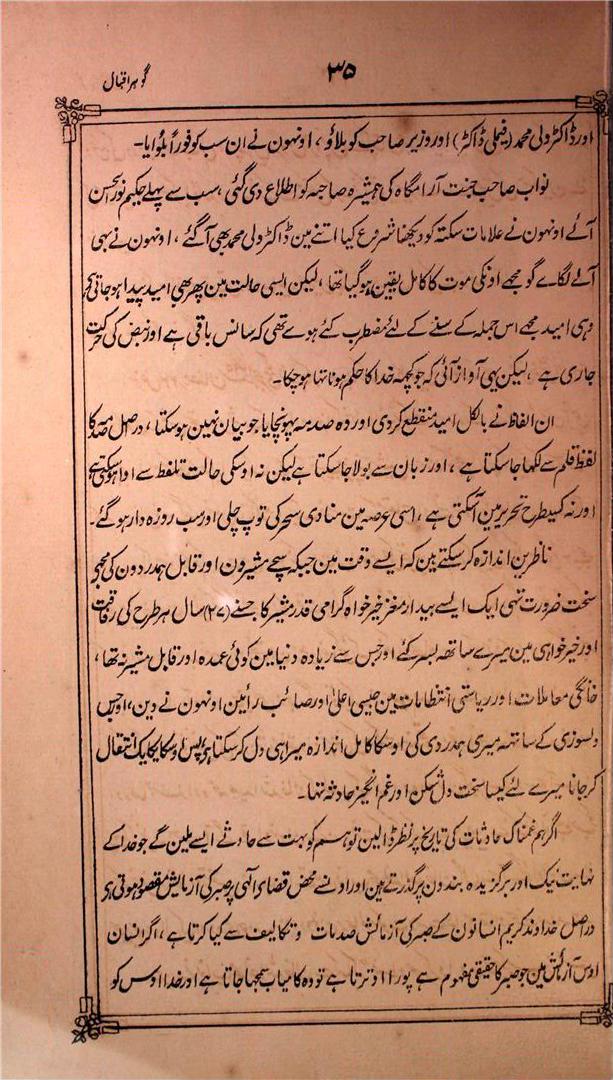 ۳۵
گوہر اقبال
اور ڈاکٹر ولی محمد (فیملی ڈاکٹر) اور وزیر صاحب کو بلاؤ، اونہون نے ان سب کو فوراً بلوایا۔
نواب صاحب جنت آرامگاہ کی ہمشیرہ صاحبہ کو اطلاع دی گئی، سب سے پہلے حکیم نور الحسن
آئے اونہون نے علامات سکتہ کو دیکھنا شروع کیا اتنے مین ڈاکٹر ولی محمد بھی آ گئے، اونہون نے بہی
آلے لگاے گو مجھے اونکی موت کا کامل یقین ہو گیا تھا، لیکن ایسی حالت مین پھر بھی امید پیدا ہو جاتی ہے
وہی امید مجھے اس جملہ کے سننے کے لئے مضطرب کئے ہوے تھی کہ سانس باقی ہے اور نبض کی حرکت
جاری ہے، لیکن یہی آواز آئی کہ جو کچھہ خدا کا حکم ہونا تہا ہو چکا۔
ان الفاظ نے بالکل امید منقطع کر دی اور وہ صدمہ پہونچایا جو بیان نہین ہو سکتا، در اصل صدمہ کا
لفظ قلم سے لکھا جا سکتا ہے، اور زبان سے بولا جا سکتا ہے لیکن نہ اوسکی حالت تلفظ سے ادا ہو سکتی ہے
اور نہ کسیطرح تحریر مین آ سکتی ہے، اسی عرصہ مین منادی سحر کی توپ چلی اور سب روزہ دار ہو گئے۔
ناظرین اندازہ کر سکتے ہین کہ ایسے وقت مین جبکہ سچے مشیرون اور قابل ہمدردون کی مجھے
سخت ضرورت تہی ایک ایسے بیدار مغز خیر خواہ گرامی قدر مشیر کا جسنے (۲۷) سال ہر طرح کی رفاقت
اور خیر خواہی مین میرے ساتھہ بسر کئے اور جس سے زیادہ دنیا مین کوئی عمدہ اور قابل مشیر نہ تھا،
خانگی معاملات اور ریاستی انتظامات مین جیسی اعلیٰ اور صائب رائین اونہون نے دین، اور جس
دلسوزی کے ساتھہ میری ہمدردی کی اوسکا کامل اندازہ میرا ہی دل کر سکتا ہے پس اوسکا یکایک انتقال
کر جانا میرے لئے کیسا سخت دل شکن اور غم انگیز حادثہ تہا۔
اگر ہم غمناک حادثات کی تاریخ پر نظر ڈالین تو ہم کو بہت سے حادثے ایسے ملین گے جو خدا کے
نہایت نیک اور برگزیدہ بندون پر گذرتے ہین اور اونسے محض قضاے الٰہی پر صبر کی آزمایش مقصود ہوتی ہے
در اصل خداوند کریم انسانون کے صبر کی آزمائش صدمات و تکالیف سے کیا کرتا ہے، اگر انسان
اوس آزمائش مین جو صبر کا حقیقی مفہوم ہے پورا اوترتا ہے تو وہ کامیاب سمجھا جاتا ہے اور خدا اوس کو